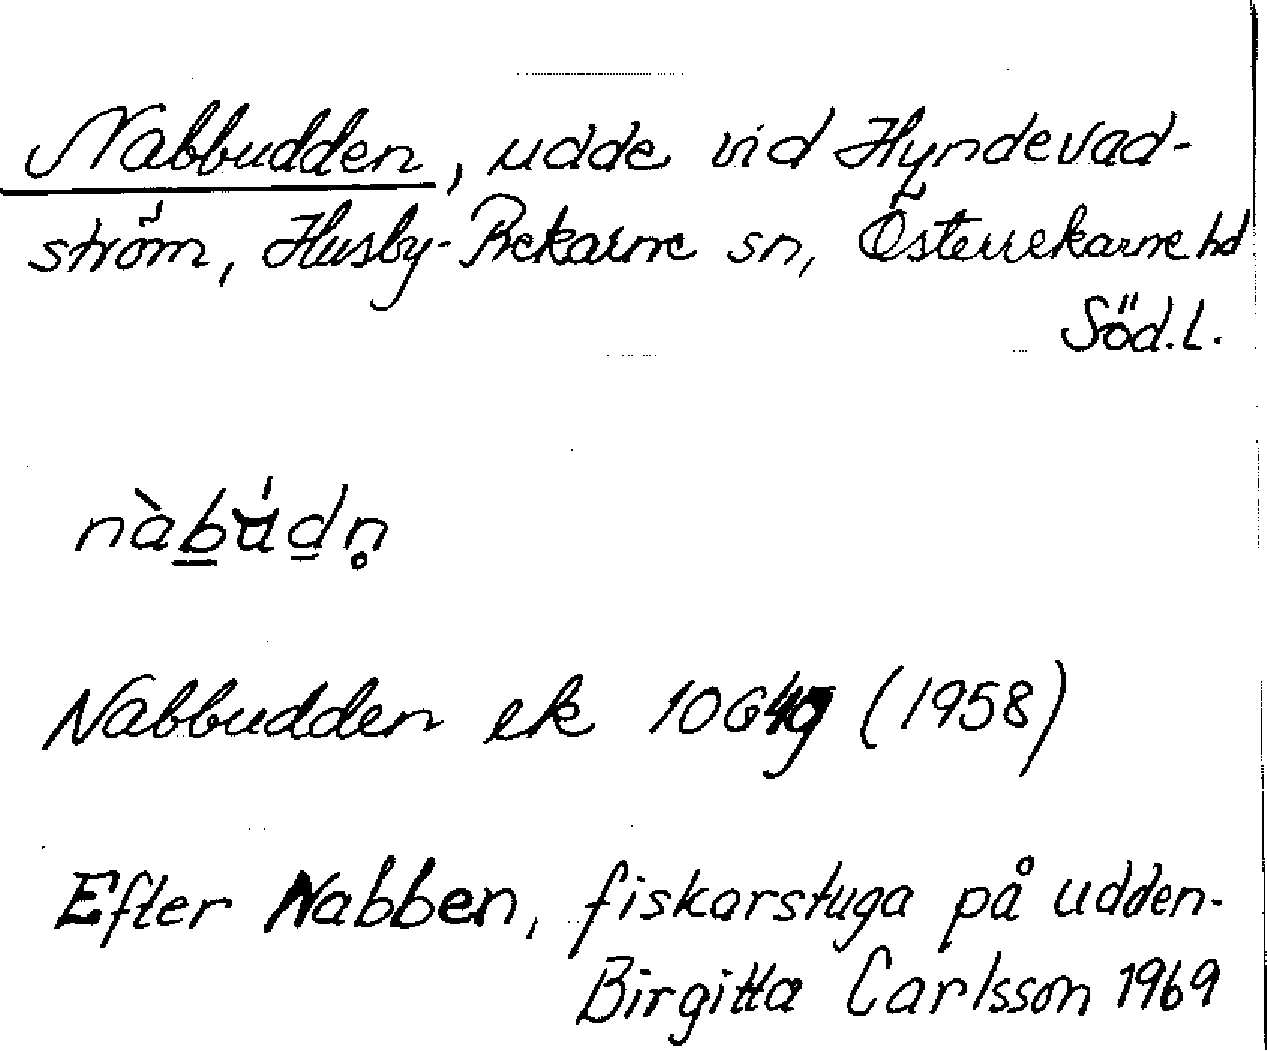 Nabbudden, udde vid Hyndevad-
ström, Husby-Rekarne sn, Österrekarne hd
Söd.l.
nàbu̇́dn̥
Nabbudden ek (1958)
Efter Nabben, fiskarstuga på udden.
Birgitta Carlsson 1969